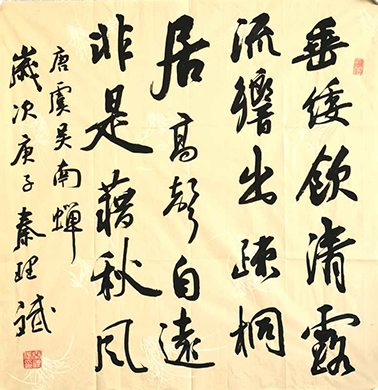 垂緌飲清露
流響出疎桐
居高聲自遠
非是藉秋風
唐虞吴南蟬
歲次庚子秦理斌